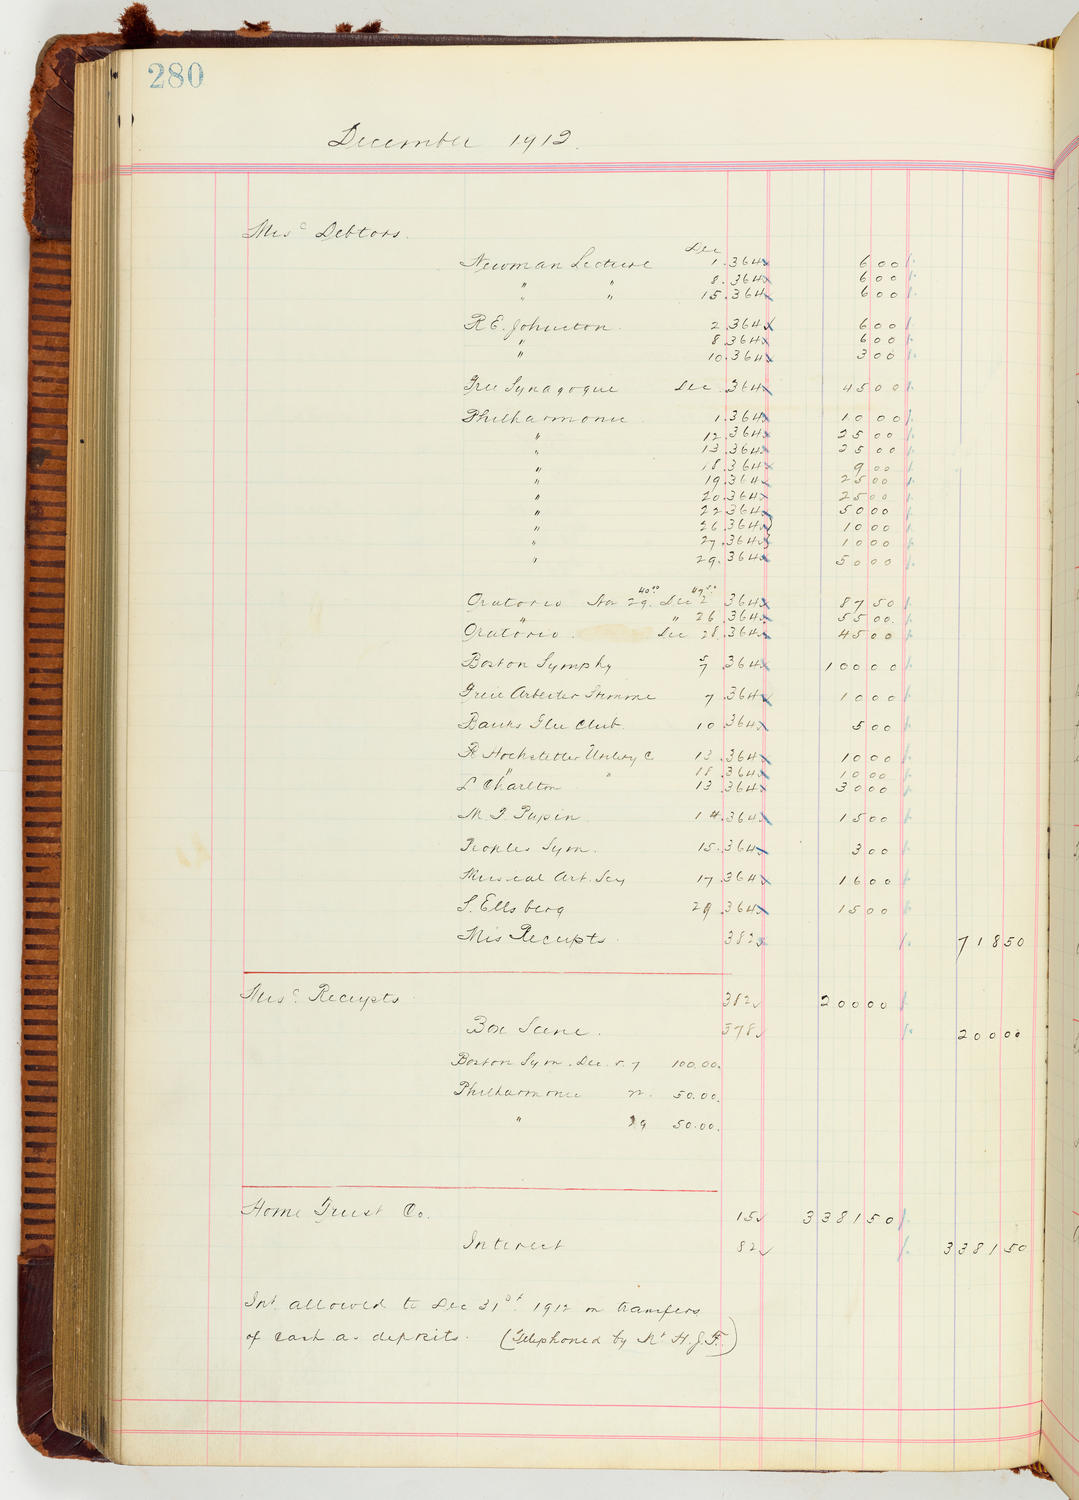 280
December 1912.
Misc Debtors.
Dec
Newman Lecture 1. 364 6 00
" " 8. 364 6 00
" " 15. 364 6 00
R E. Johnston. 2. 364 6 00
" 8. 364 6 00
" 10. 364 3 00
Free Synagogue Dec 364 45 00
Philharmonic 1. 364 10 00
" 12. 364 25 00
" 13. 364 25 00
" 18. 364 9 00
" 19. 364 25 00
" 20. 364 25 00
" 22. 364 50 00
" 26. 364 10 00
" 27. 364 10 00
" 29. 364 50 00
40.00
Oratorio Nov 29. Dec 2 364 87 50
" " 26. 364 55 00.
Oratorio. Dec 28. 364 45 00
Boston Symphy 5 7 364 100 00
Freie Arbeiter Stimme 7 364 10 00
Banks Glee Club. 10 364 5 00
R Hochstetter 13 364 10 00
" " 18 364 10 00
L Charlton 13 364 30 00
M. I. Pupin 14. 364 15 00
Peoples Sym. 15. 364 3 00
Musical Art. Scy 17. 364 16 00
S. Ellsberg 29. 364 15 00
Mis Receipts. 382 718 50
Misc. Receipts 382 200 00
Box Scene. 378 200 00
Boston Sym. Dec. 5. 7 100.00.
Philharmonic 22. 50.00.
" 29 50.00.
Home Trust Co. 15 3381 50
Interest 82 3381 50
Int. allowed to Dec 31st. 1912 on transfers
of cash as deposits. (Telephoned by Mr H. J. F.)